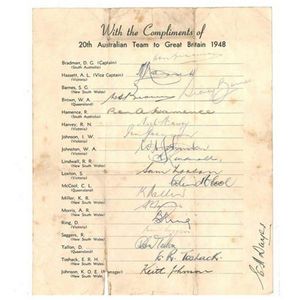 With the Compliments of
20th Australian Team to Great Britain 1948
Bradman, D. G. (Captain)
(South Australia)
Hassett, A. L. (Vice Captain)
(Victoria)
Barnes, S. G.
(New South Wales)
Brown, W. A.
(Queensland)
Hamence, R.
(South Australia)
Ron A Hamence
Harvey, R. N.
(Victoria)
Johnson, I. W.
(Victoria)
Johnston, W. A.
(Victoria)
Lindwall, R. R.
(New South Wales)
Loxton, S.
(Victoria)
Sam Loxton
McCool, C. L.
(Queensland)
Colin McCool
Miller, K. R.
(New South Wales)
K Miller
Morris, A. R.
(New South Wales)
Ring, D.
(Victoria)
D Ring
Saggers, R.
(New South Wales)
Tallon, D.
(Queensland)
Don Tallon
Toshack, E. R. H.
(New South Wales)
E. R. Toshack
Johnson, K. O. E. (Manager)
(New South Wales)
Keith Johnson